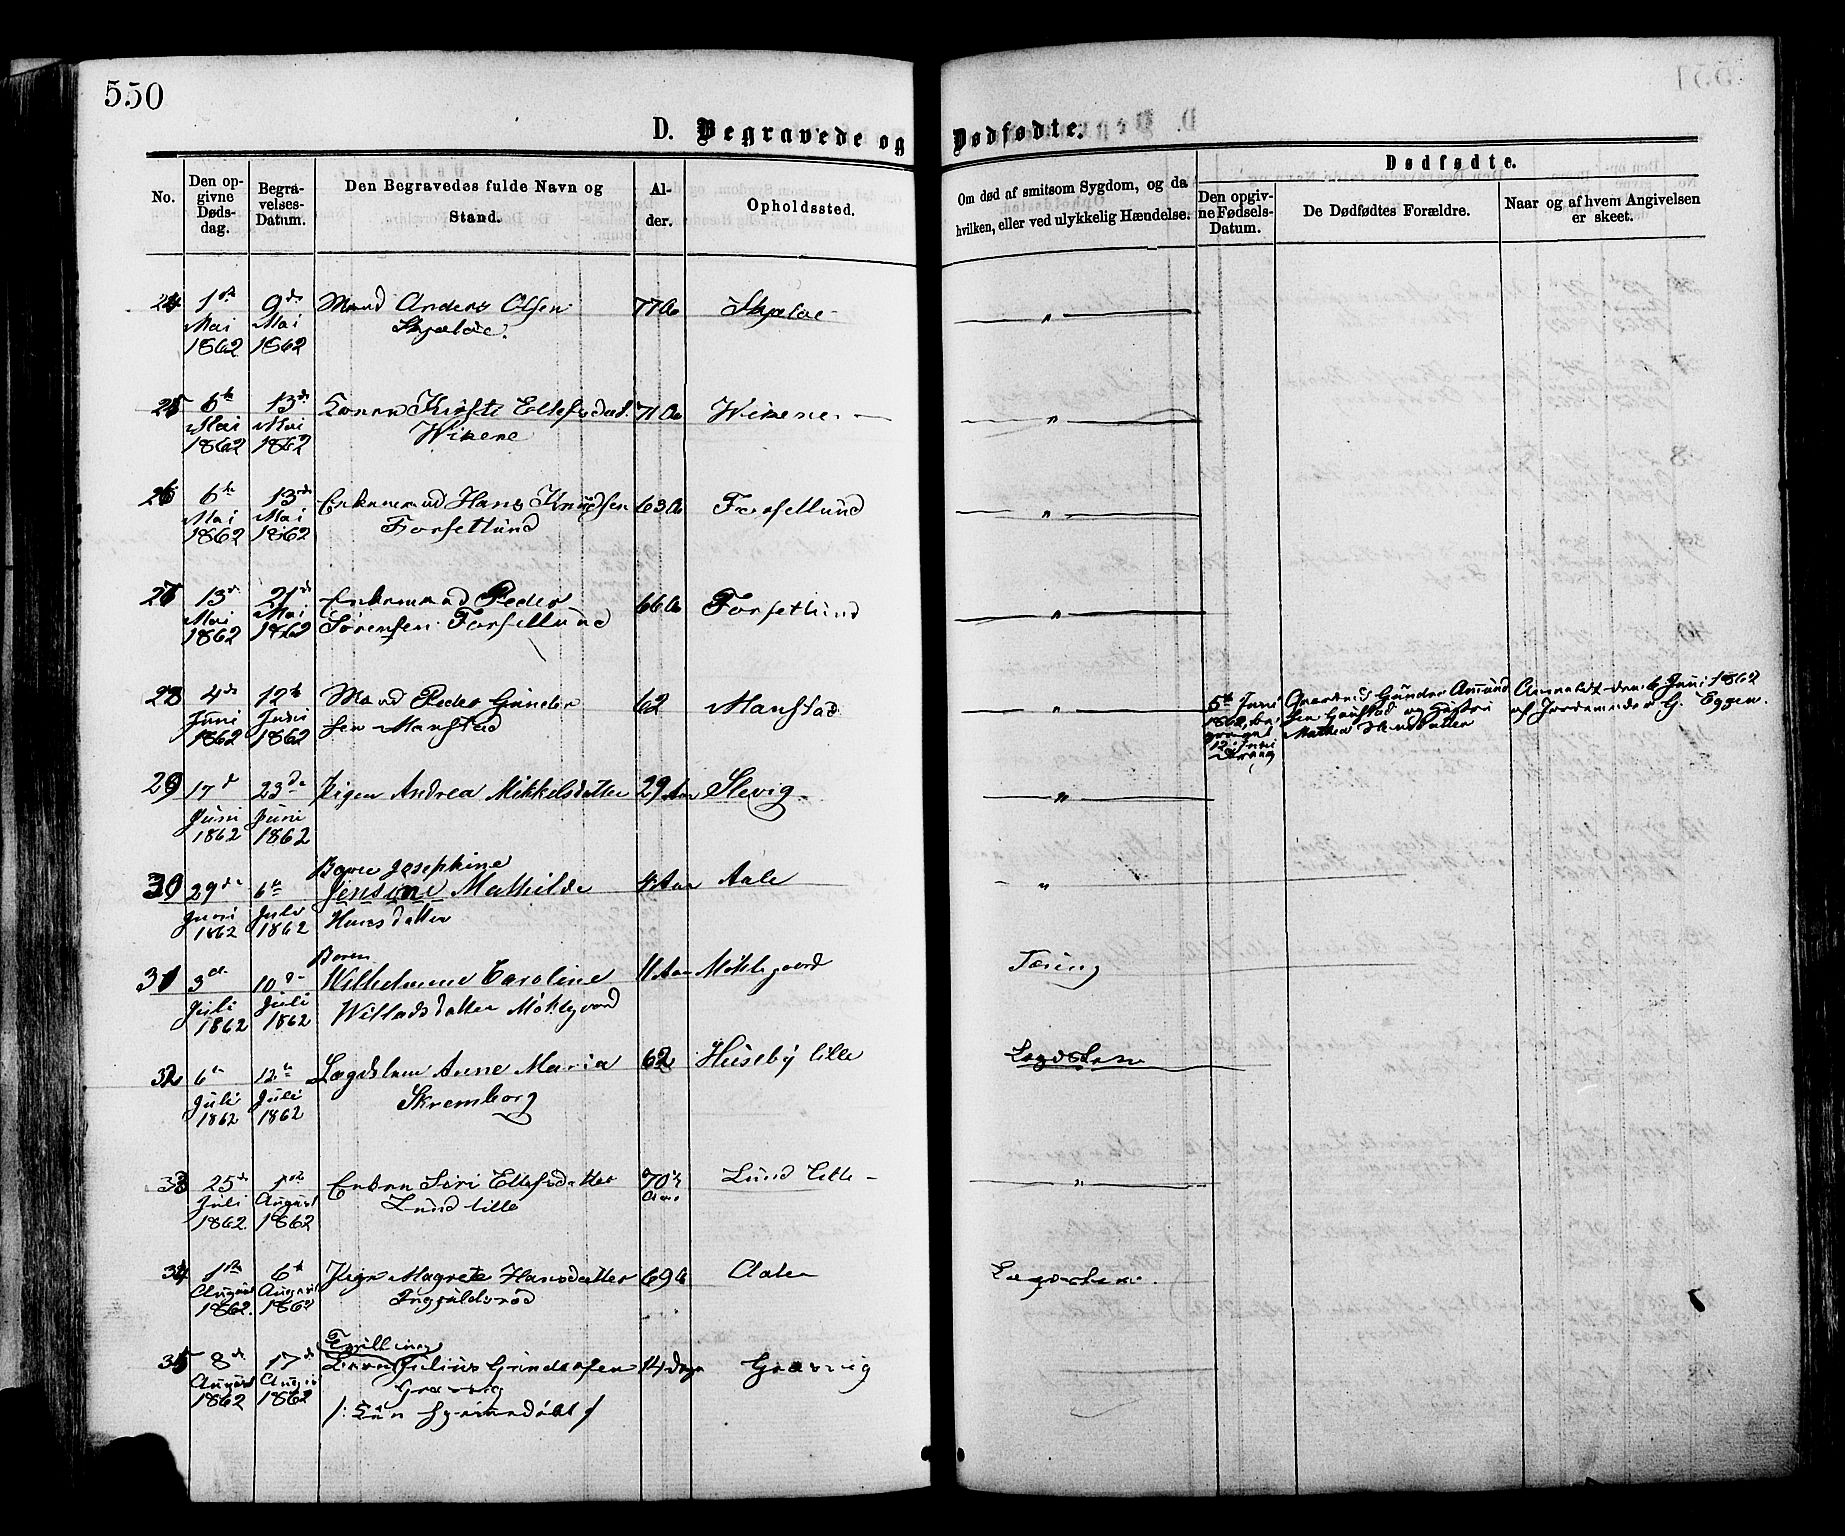 550
D. Begravede og Dødfødte.
No.
Den opgivne Dødsdag.
Begravelses-Datum.
Den Begravedes fulde Navn og Stand.
Alder.
Opholdssted.
Om død af smitsom Sygdom, og da hvilken, eller ved ulykkelig Hændelse.
Dødfødte.
Den opgivne Fødsels-Datum.
De Dødfødtes Forældre.
Naar og af hvem Angivelsen er skeet.
24 1ste Mai 1862 9de Mai 1862 Mand Anders Olsen 77 Skjeløe "
Skjeløe.
25 6te Mai 1862 13de Mai 1862 Ellefsdatt. 71 Wikene "
Wikene
26 6te Mai 1862 13de Mai 1862 Enkemand Hans Knudsen 63 Forsetlund "
Forsetlund
27 13de Mai 1862 21de Mai 1862 Enkemand Peder 66 Forsetlund "
Sørensen Forsetlund
28 4de Juni 1862 12te Juni 1862 Mand Peder Gunder 62 Manstad "
sen Manstad
5te Juni 1862, 12 Juni
Gunder Amund
sen og Hustru
Mathea
Anmeldt den 6 Juni 1862
af Jordemoder G. Eggen.
29 17d Juni 1862 23de Juni 1862 Pigen Andrea Mikkelsdatter 29 Aar Slevig "
30 29de Juni 1862 6te Juli 1862 Barn Josephine
Jensine Mathilde 4 Aar Aale "
Hansdatter
31 3de Juli 1862 10de Juli 1862 Barn
Wilhelmine Caroline 11 Aar Møklegaard Tæring
Willadsdatter Møklegaard
32 6te Juli 1862 12te Juli 1862 Lægdslem Anne Maria 62 Huseby lille Lægdslem
Skremborg
33 25de Juli 1862 1ste August 1862 Enken Siri Ellefsdatter 70 Lund lille "
Lund lille
34 1ste August 1862. 6te August 1862 Pigen Magrete Hansdatter 69 Aalen Lægdslem.
Ingjuldsrød
35 8de August 1862 17de August 1862 Tvilling
Julius 14 Dage Graavig
Graavig